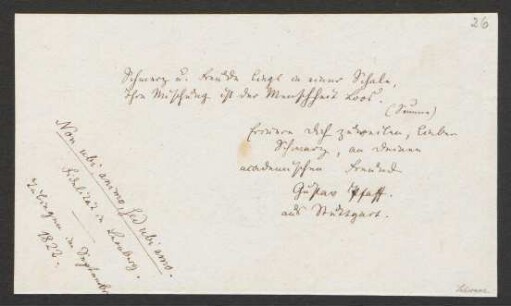 26
Schmerz u. Freude liegt in einer Schale,
Ihre Mischung ist der Menschheit Loos.
(Seume)
Erinnre Dich zuweilen, lieber
Schwarz, an Deinen
academischen Freund
Gustav Pfaff.
aus Stuttgart.
Non ubi animo, sed ubi amo.
Fidelitas in
Tübingen im September
1822.